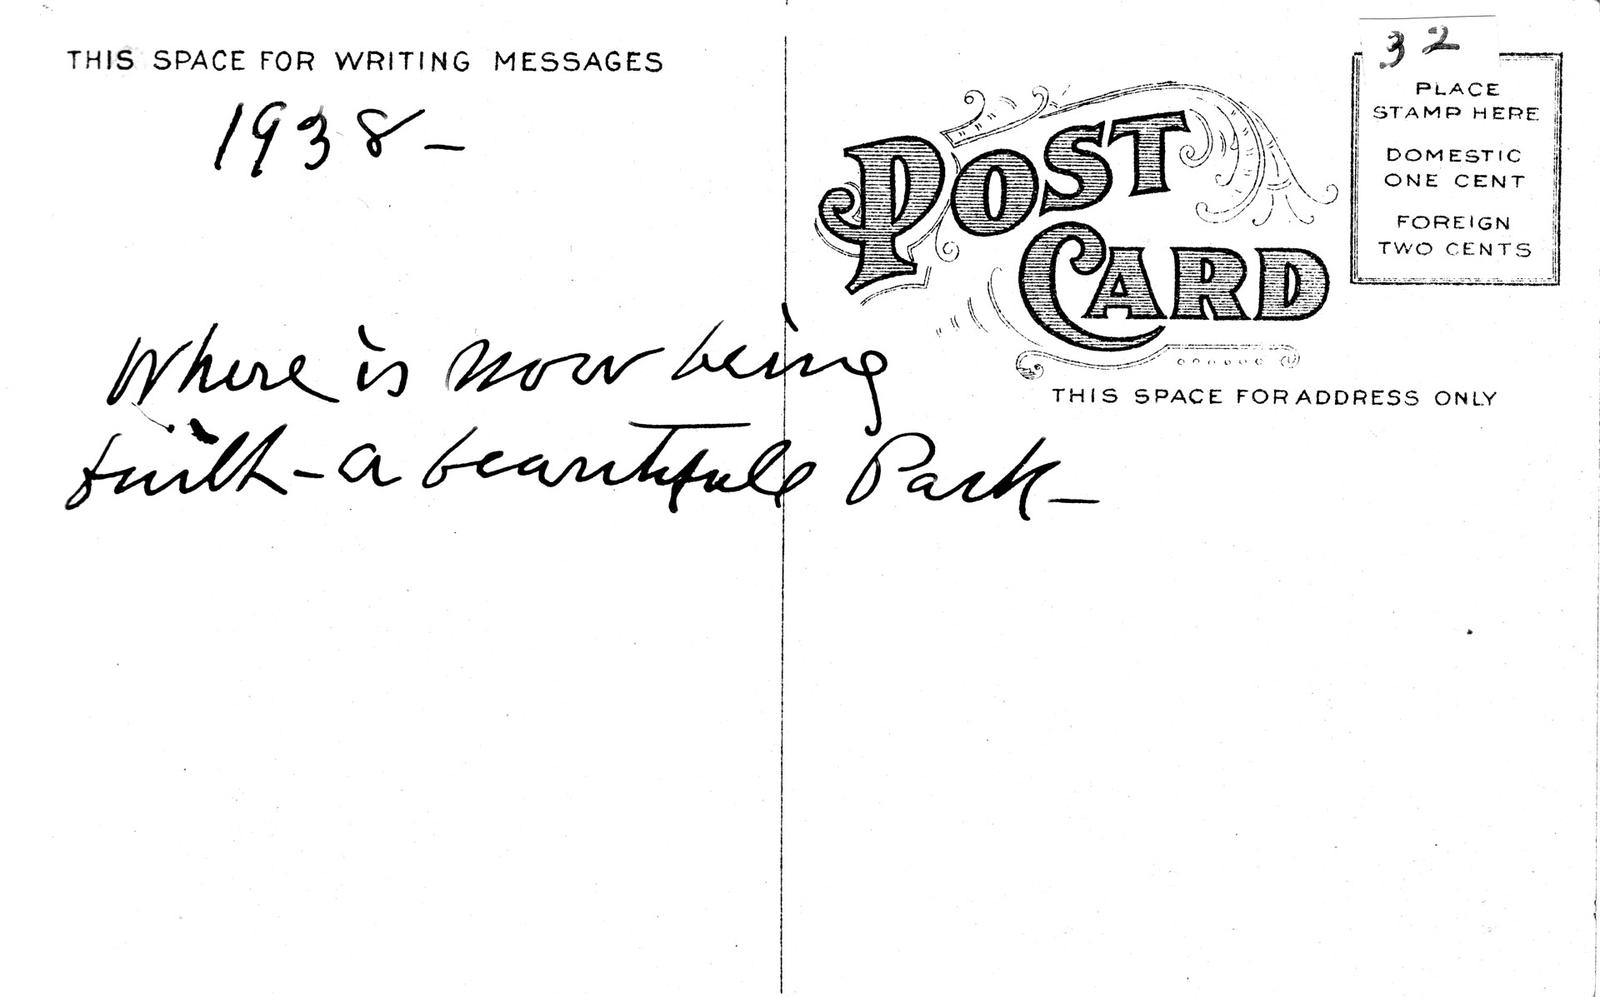 THIS SPACE FOR WRITING MESSAGES
1938 –
Where is now being
built – a beautiful Park –
POST
CARD
THIS SPACE FOR ADDRESS ONLY
32
PLACE
STAMP HERE
DOMESTIC
ONE CENT
FOREIGN
TWO CENTS